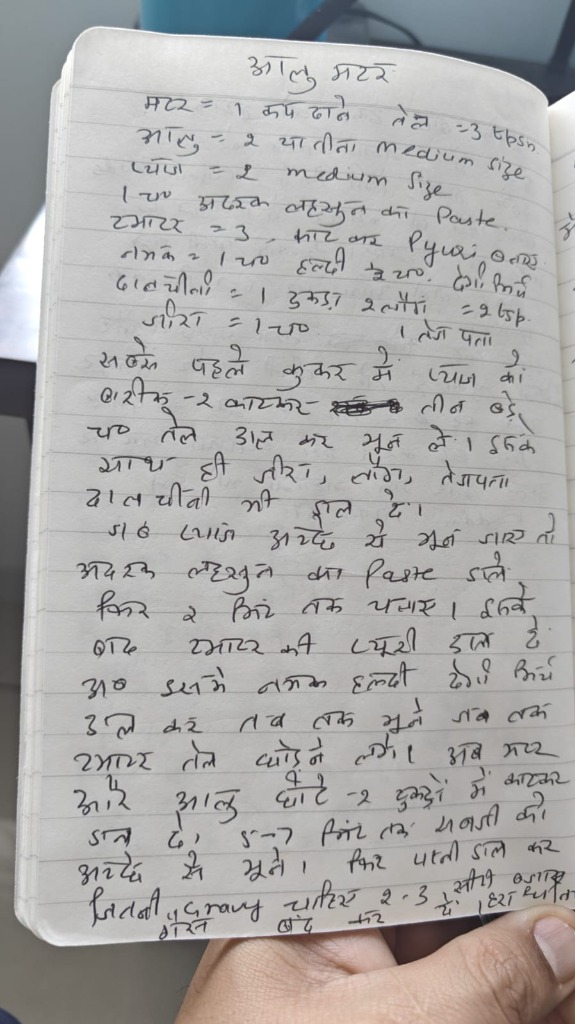 आलु मटर
मटर = 1 कप दाने तेल = 3 tbsn.
आलु = 2 या तीन medium size
प्याज = 2 medium size
1 च० अदरक लहसुन का Paste.
टमाटर = 3, काट कर Pyuri बनाए
नमक = 1 च० हल्दी ½ च०. देगी मिर्च
दालचीनी = 1 टुकड़ा 2 लौंग = 2 tsp.
जीरा = 1 च० 1 तेज पता
सबसे पहले कुकर में प्याज को
बारीक -2 काटकर तीन बड़े
च० तेल डाल कर भून ले। इसके
साथ ही जीरा, लौंग, तेजपता
दालचीनी भी डाल दे।
जब प्याज अच्छे से भून जाए तो
अदरक लहसुन का Paste डाले
फिर 2 मिंट तक पकाए। इसके
बाद टमाटर की प्यूरी डाल दे
अब इसमे नमक हल्दी देगी मिर्च
डाल कर तब तक भूने जब तक
टमाटर तेल छोडने लगे। अब मटर
और आलु छोटे -2 टुकड़ों में काटकर
डाल दे। 5-7 मिंट तक सबजी को
अच्छे से भूने। फिर पानी डाल कर
जितनी Gravy चाहिए 2-3 सीटी
बंद कर दे। हरा धनिया